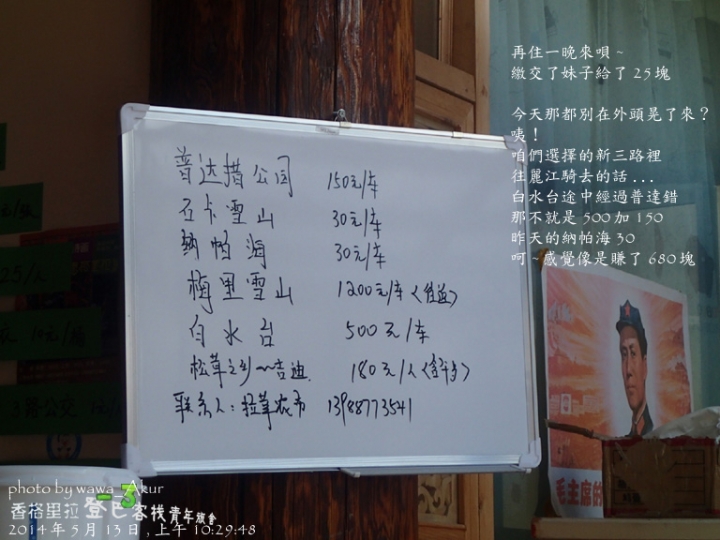 普达措公园 150元/车
石卡雪山 30元/车
纳帕海 30元/车
梅里雪山 1200元/车<往返>
白水台 500元/车
松茸之乡~吉迪 180元/人
联系人: 拉茸农布 13988773541
再住一晚來唄~
繳交了妹子給了25塊
今天那都別在外頭晃了來?
咦!
咱們選擇的新三路裡
往麗江騎去的話...
白水台途中經過普達錯
那不就是500加150
昨天的納帕海30
呵~感覺像是賺了680塊
毛主席的
photo by wawa Akur
香格里拉登巴客栈青年旅舍
2014年5月13日,上午10:29:48